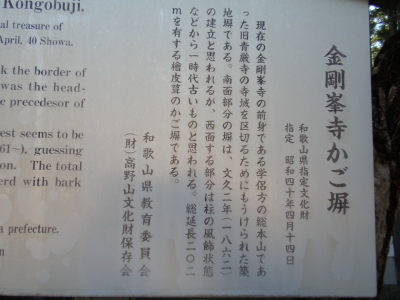 Kongobuji.
al treasure of
April, 40 Showa.
k the border of
was the head-
e precedesor of
est seems to be
61~), guessing
on. The total
erd with bark
a prefecture.
n
金剛峯寺かご塀
和歌山県指定文化財
指定 昭和四十年四月十四日
現在の金剛峯寺の前身である学侶方の総本山であ
った旧青巌寺の寺域を区切るためにもうけられた築
地塀である。南面部分の塀は、文久二年(一八六二)
の建立と思われるが、西面する部分は柱の風飾状態
などから一時代古いものと思われる。総延長二〇二
mを有する檜皮葺のかご塀である。
和歌山県教育委員会
(財)高野山文化財保存会